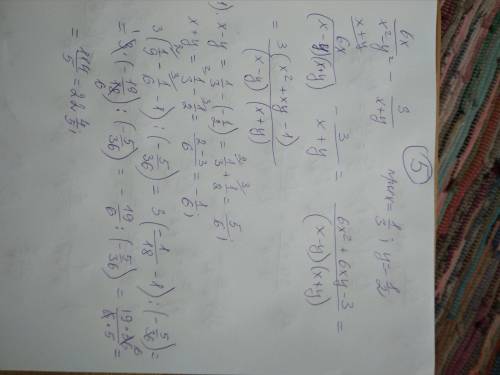 ⑤
6x/(x²-y²) - 3/(x+y) при x=1/3; y=-1/2
6x/((x-y)(x+y)) - 3/(x+y) = (6x²+6xy-3)/((x-y)(x+y)) =
= 3(x²+xy-1)/((x-y)(x+y))
1) x-y = 1/3-(-1/2) = 1/3+1/2 = 5/6;
x+y = 1/3-1/2 = (2-3)/6 = -1/6;
3(1/9-1/6-1):(-5/36) = 3(-1/18-1):(-5/36) =
= 3·(-19/18):(-5/36) = -19/6:(-5/36) = 19·36/(6·5) =
= 114/5 = 22 4/5;